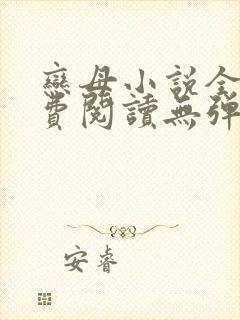 戀母小說全
費閱讀無彈
安睿